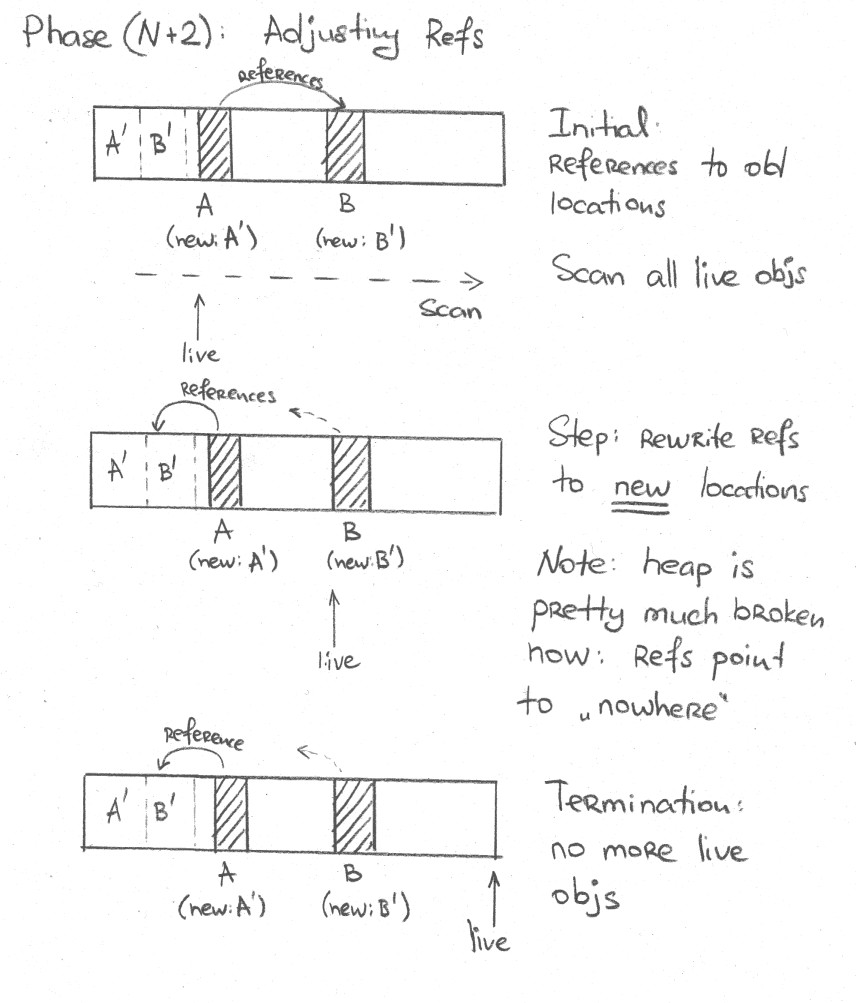 Phase (N+2): Adjusting Refs
References
A' B'
A B
(new: A') (new: B')
Scan
live
Initial:
References to old
locations
Scan all live objs
References
A' B'
A B
(new: A') (new: B')
live
Step: Rewrite Refs
to new locations
Note: heap is
pretty much broken
now: Refs point
to „nowhere“
Reference
A' B'
A B
(new: A') (new: B')
live
Termination:
no more live
objs